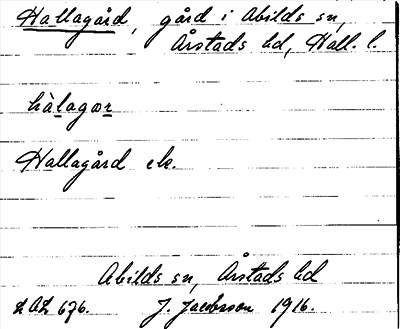 Hallagård, gård i Abilds sn,
Årstads hd, Hall. l.
hàlagər
Hallagård ek.
Abilds sn, Årstads hd
LAL 676. J. Jacobsson 1916.